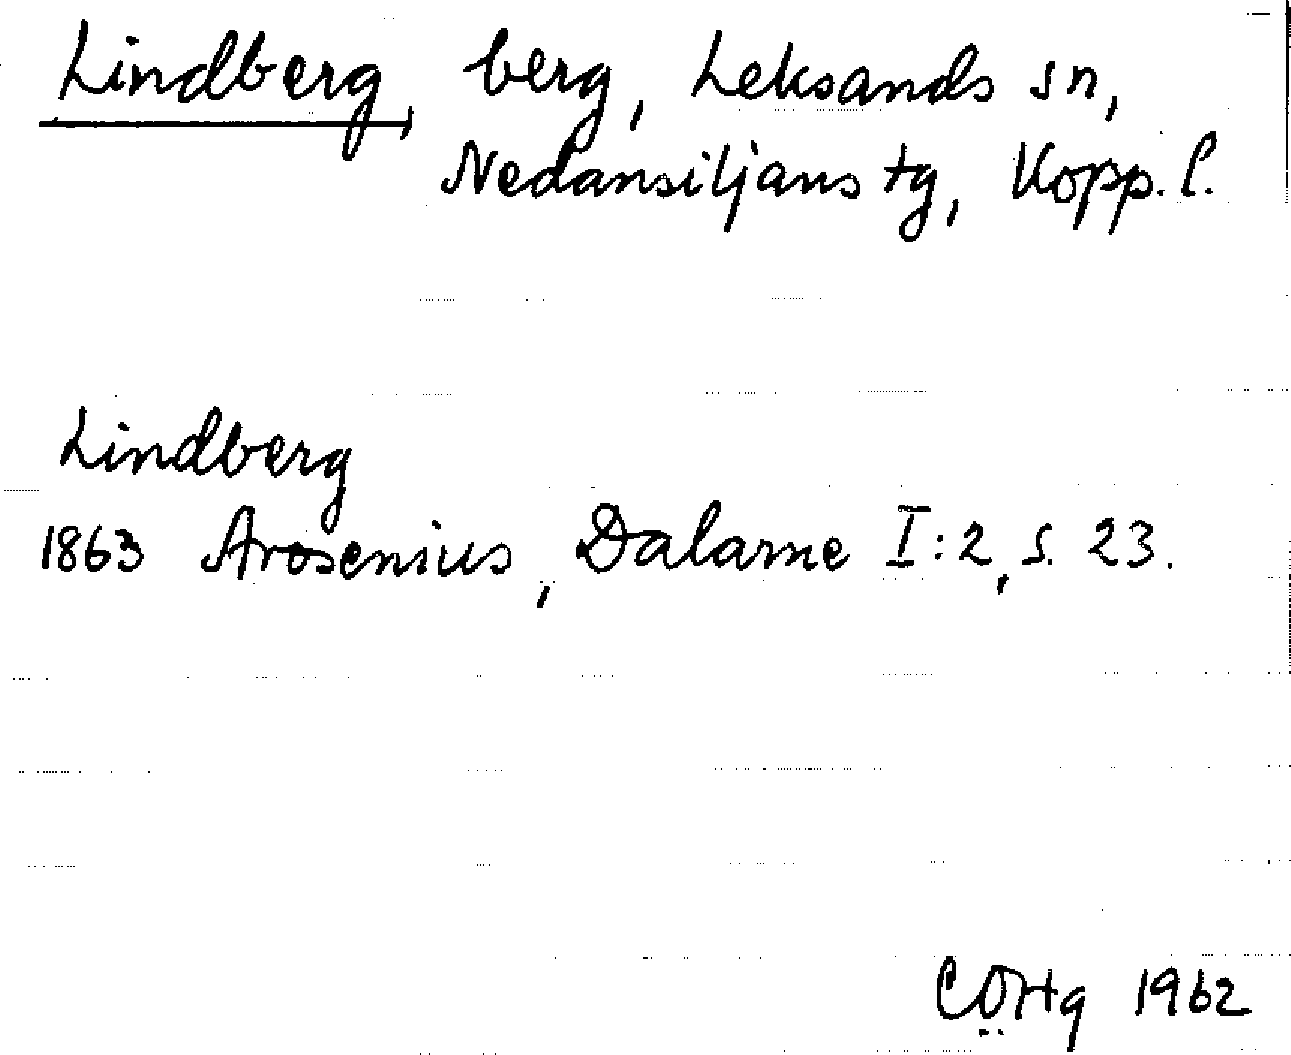 Lindberg, berg, Leksands sn,
Nedansiljans tg, Kopp. l.
Lindberg
1863 Arosenius, Dalarne I:2, s. 23.
CÖHg 1962